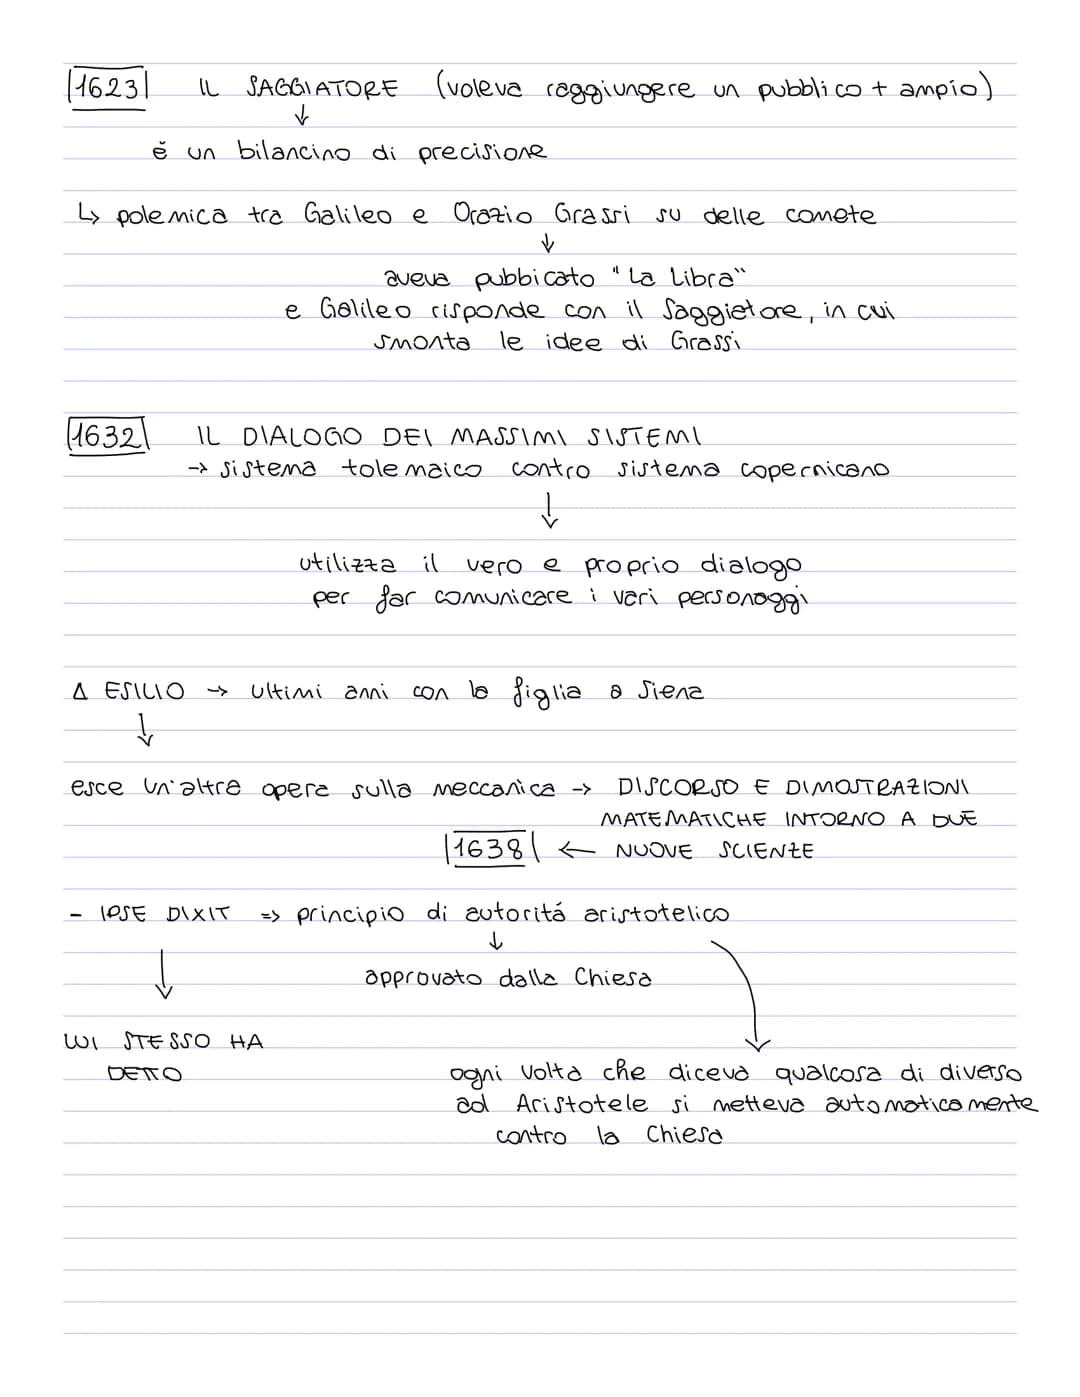 1623 IL SAGGIATORE (voleva raggiungere un pubblico + ampio)
↓
é un bilancino di precisione
↳ polemica tra Galileo e Orazio Grassi su delle comete
↓
aveva pubbicato "La Libra"
e Galileo risponde con il Saggiatore, in cui
smonta le idee di Grassi
1632 IL DIALOGO DEI MASSIMI SISTEMI
→ sistema tolemaico contro sistema copernicano
↓
utilizza il vero e proprio dialogo
per far comunicare i vari personaggi
Δ ESILIO → ultimi anni con la figlia a Siena
↓
esce un'altra opera sulla meccanica → DISCORSO E DIMOSTRAZIONI
MATEMATICHE INTORNO A DUE
1638 ← NUOVE SCIENZE
- IPSE DIXIT => principio di autoritá aristotelico
↓
↓ approvato dalla Chiesa
LUI STESSO HA
DETTO
ogni volta che diceva qualcosa di diverso
ad Aristotele si metteva automaticamente
contro la Chiesa